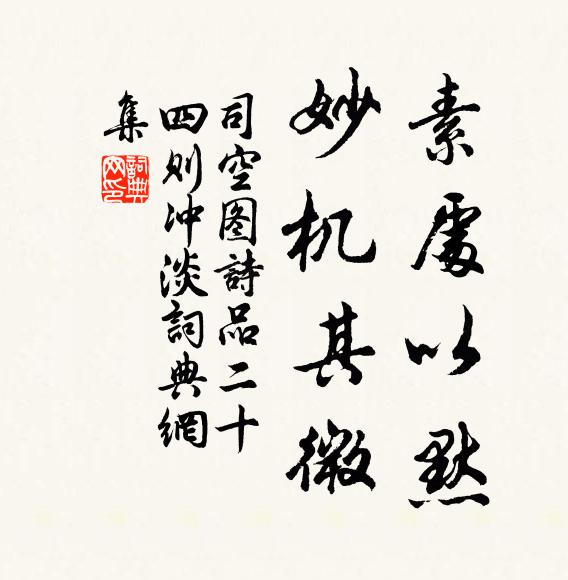 素處以默
妙机其微
司空图詩品二十
四则冲淡詞典網
集
詞典
网印